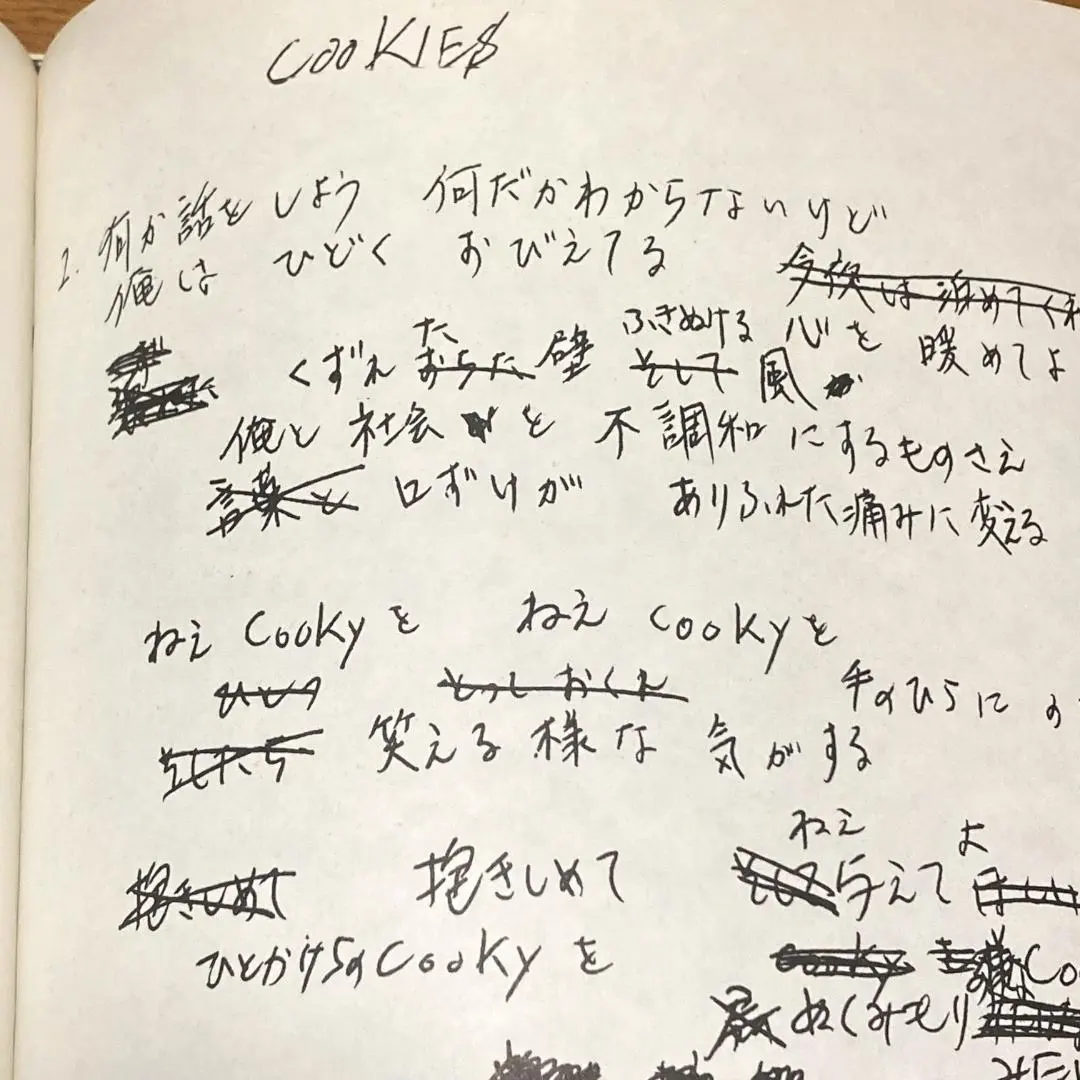 COOKIES
1. 何か話をしよう 何だかわからないけど
俺は ひどく おびえてる
今夜は泊めてくれ
た ふきぬける 心を 暖めてよ
くずれ おちた 壁 そして 風
俺と 社会 を 不調和 にするものさえ
言葉と 口ずけが ありふれた痛みに変える
ねえ Cooky を ねえ Cooky を
ひとつ とっしおくれ 手のひらに の
そしたら 笑える様な 気がする
ねえ よ
抱きしめて 抱きしめて そして 与えて
ひとかけらの Cooky を Cooky を Co
ぬくみもり